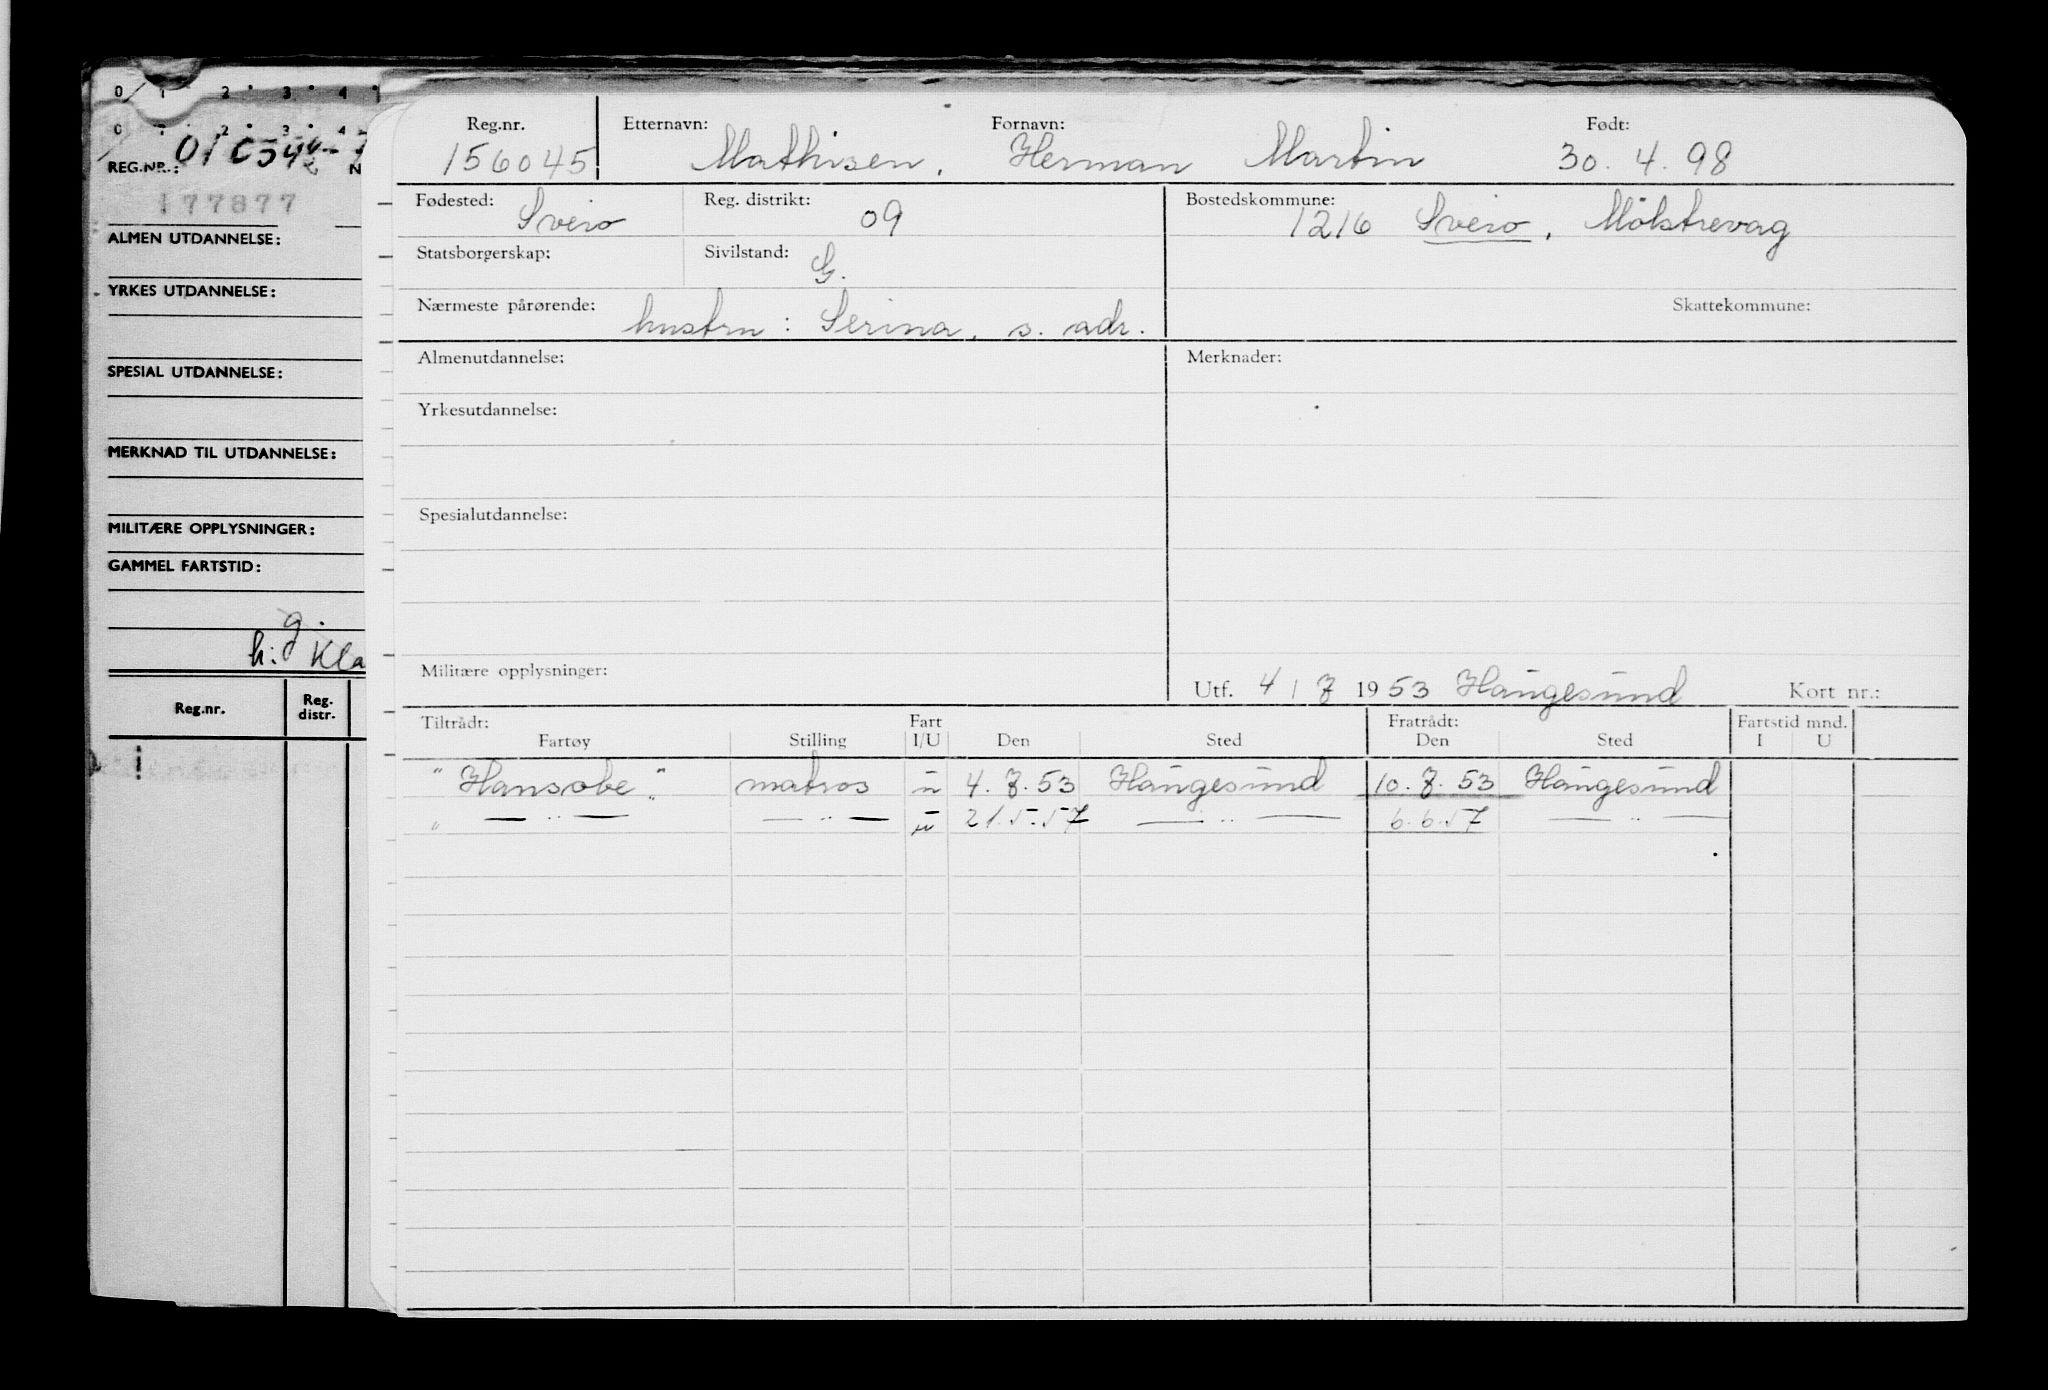 0 1 2 3 4
0 1 2 3 4
REG.NR.:
177877
ALMEN UTDANNELSE:
YRKES UTDANNELSE:
SPESIAL UTDANNELSE:
MERKNAD TIL UTDANNELSE:
MILITÆRE OPPLYSNINGER:
GAMMEL FARTSTID:
g.
h: Kla
Reg.nr. Reg. distr.
Reg.nr. Etternavn: Fornavn: Født:
156045 Mathisen, Herman Martin 30.4.98
Fødested: Reg. distrikt: Bostedskommune:
Sveio 09 1216 Sveio, Mølstrevåg
Statsborgerskap: Sivilstand: G.
Nærmeste pårørende: hustru: Serina, s. adr. Skattekommune:
Almenutdannelse: Merknader:
Yrkesutdannelse:
Spesialutdannelse:
Militære opplysninger:
Utf. 4/7 1953 Haugesund Kort nr.:
Tiltrådt: Fart Fratrådt: Fartstid mnd.
Fartøy Stilling I/U Den Sted Den Sted I U
"Hansabe". matros u 4.7.53 Haugesund 10.7.53 Haugesund
" — " — — " — u 21.5.57 — " — 6.6.57 — " —